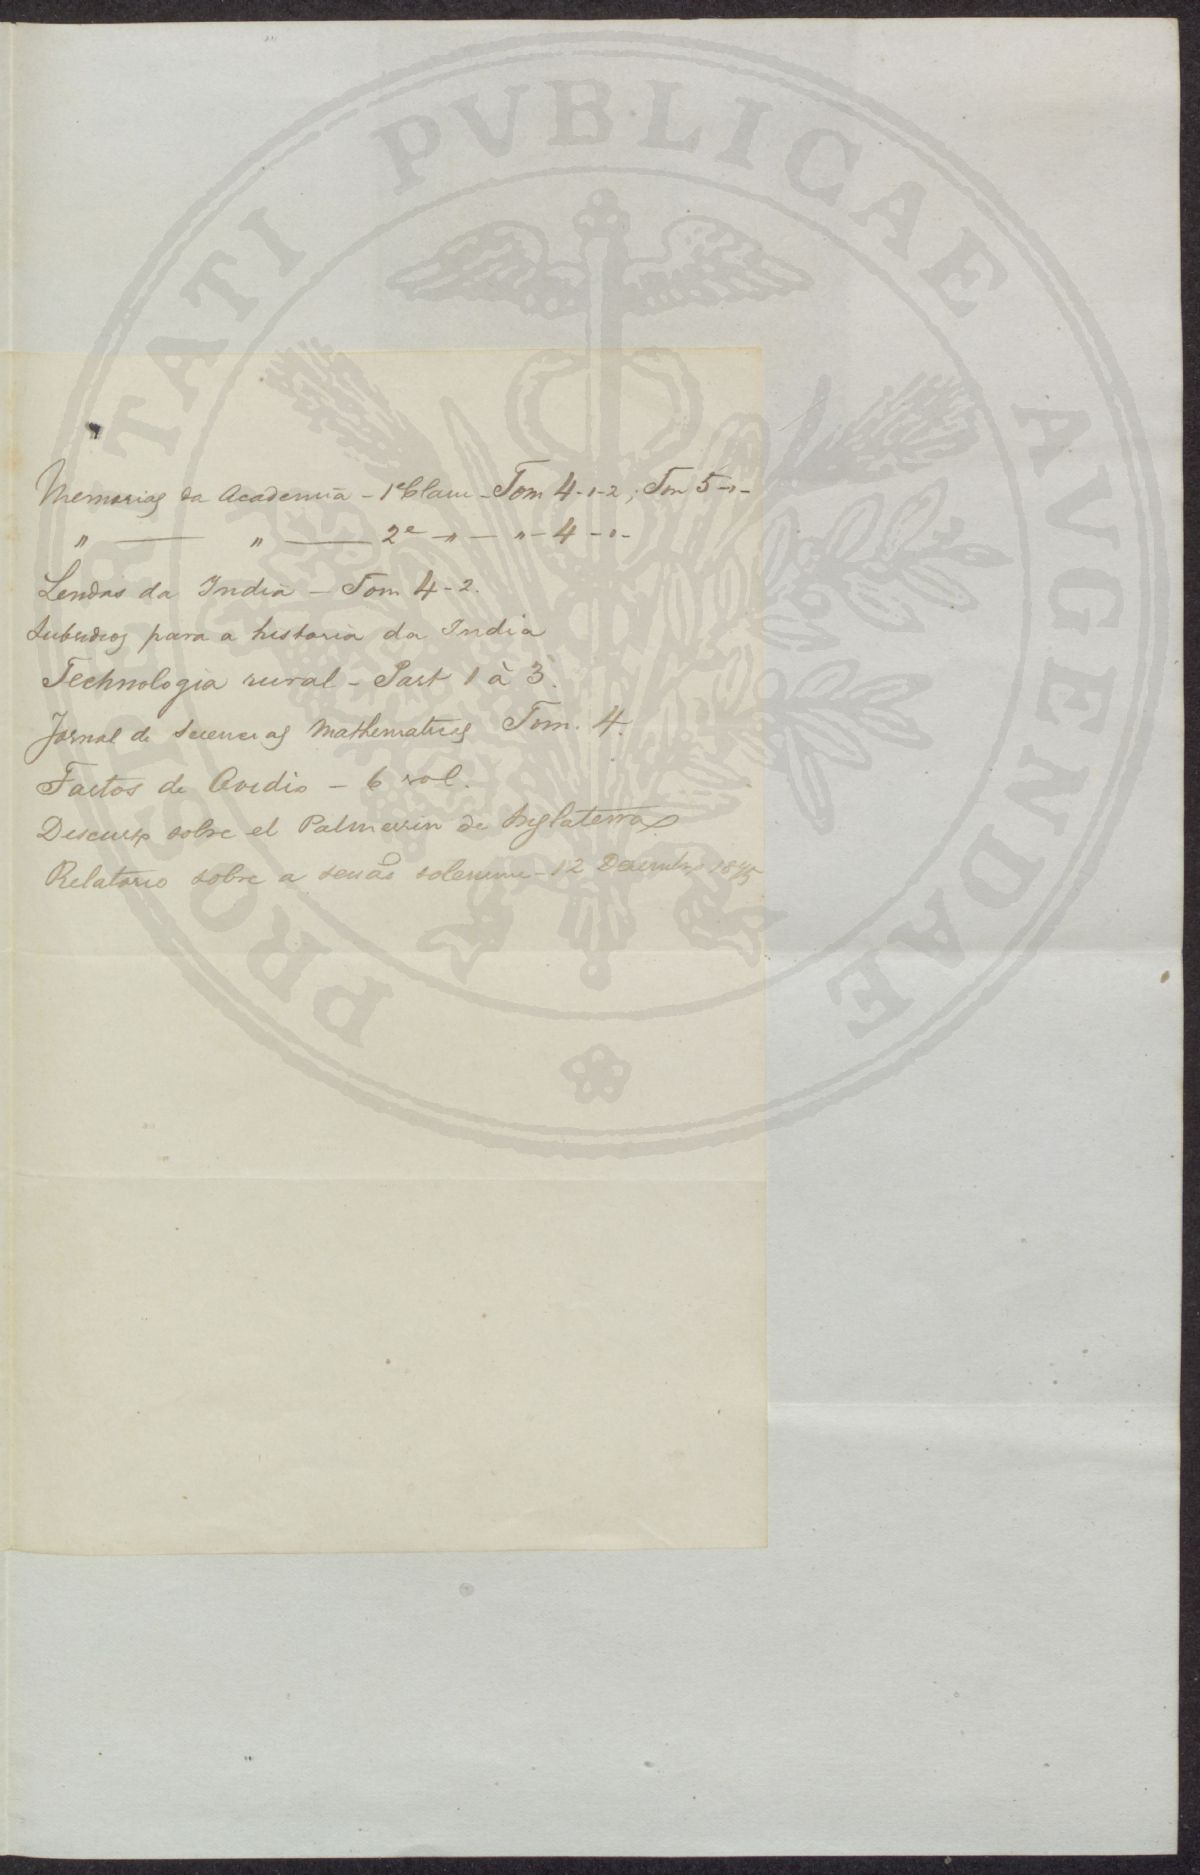 PROSPERITATI PVBLICAE AVGENDAE
Memorias da Academia - 1ª Classe - Tom 4-1-2; Tom 5-1-
" — " — 2ª - " - " - 4 - 1 -
Lendas da India - Tom. 4-2.
Subsidios para a historia da India
Technologia rural - Part 1 à 3.
Jornal de Sciencias Mathematicas Tom. 4.
Fastos de Ovidio - 6 vol.
Discurso sobre el Palmerin de Inglaterra
Relatorio sobre a sessão solemne - 12 Dezembro 1875